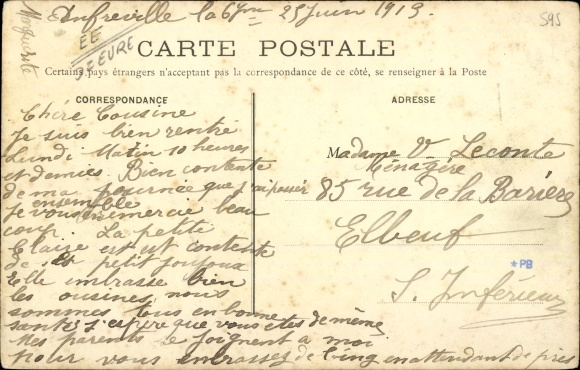 Amfreville la 6^me 25 Juin 1913.
595
Marguerite
EE
3 EURE
CARTE POSTALE
Certains pays étrangers n'acceptant pas la correspondance de ce côté, se renseigner à la Poste
CORRESPONDANCE
Chère Cousine
Je suis bien rentré
Lundi Matin 10 heures
et demies. Bien contente
de ma journée que j'ai passér
ensemble
Je vous remercie beau
coup. La petite
Claire est contente
de petit joujoux
Elle embrasse bien
les cousines, nous
sommes tous en bonne
santé j'espère que vous êtes de même
Mes parents se joignent a moi
pour vous embrasser de loing en attendant de près
ADRESSE
Madame V. Leconte
Ménagère
85 rue de la Barière
Elbeuf
*PB
S. Inférieur